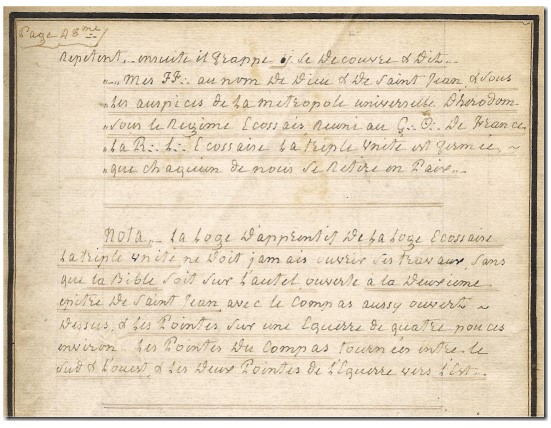 Page 48me/
Repetent, ensuite il frappe 9/ se Decouvre & Dit..
"..Mes FF∴ au nom De Dieu & De Saint Jean, & sous
"Les auspices de La metropole universelle D'herodom
"sous le Regime Ecossais Reuni au G∴ O∴ De France,
"La R∴ L∴ Ecossaise La triple unité est fermée, ~
"que chaquun de nous se Retire en Paix..
Nota.. La Loge D'apprentif De La Loge Ecossaise
La triple unité ne Doit jamais ouvrir ses travaux, sans
que La Bible Soit Sur L'autel, ouverte a la Deuxieme
epitre De Saint Jean, avec le Compas aussy ouvert ~
Dessus, & Les Pointes Sur une Equerre de quatre pouces
environ. Les Pointes Du Compas tournées entre le
Sud & L'ouest, & Les Deux Pointes de L'Equerre vers L'Est..